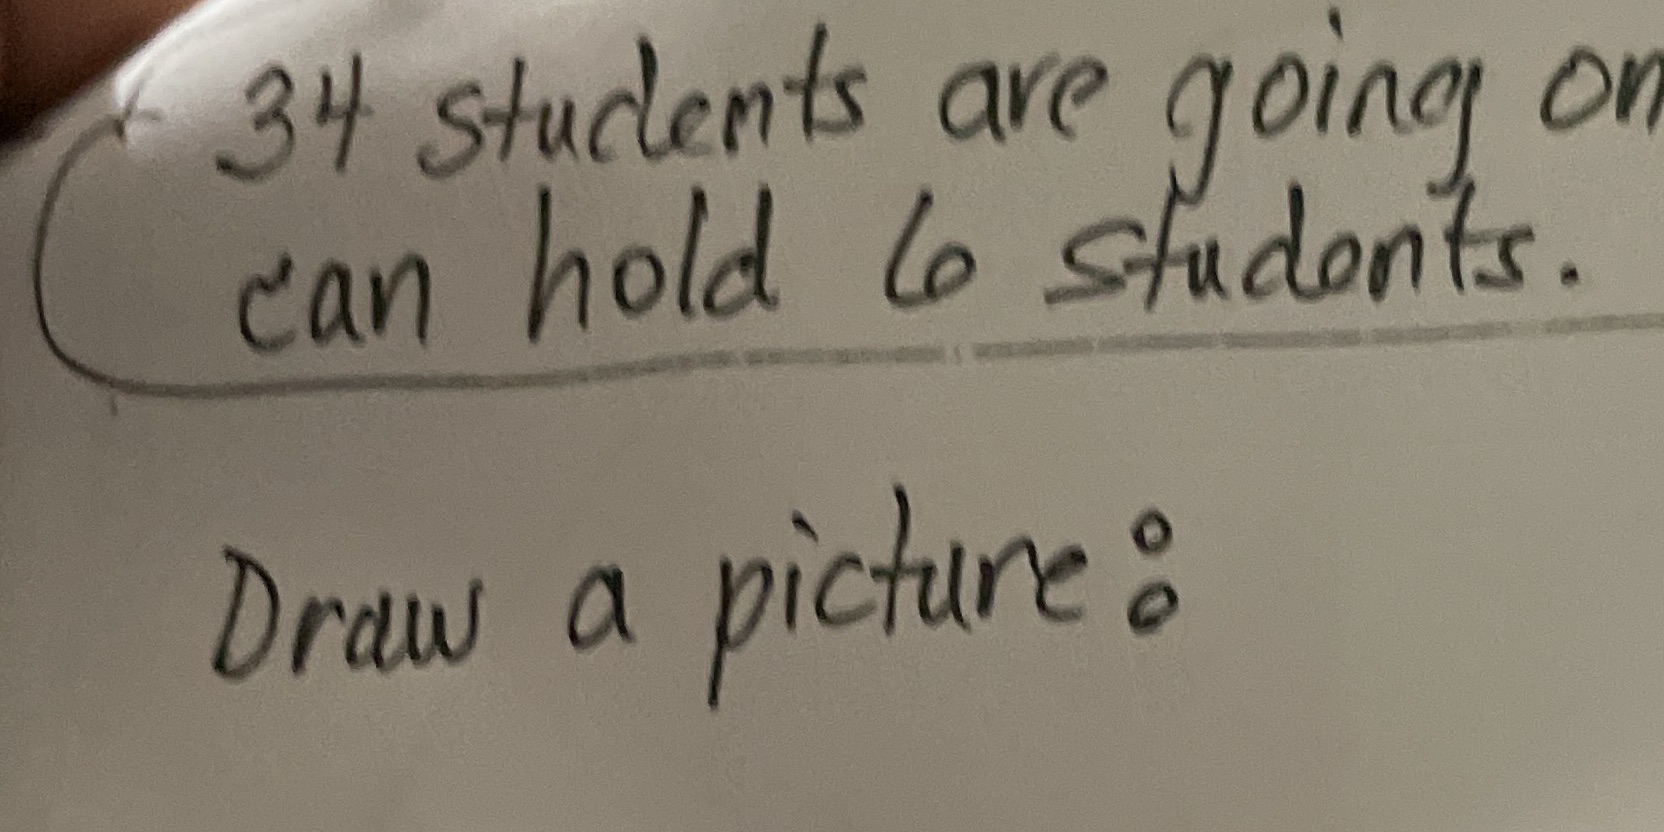 34 students are going on
can hold 6 students.
Draw a picture: